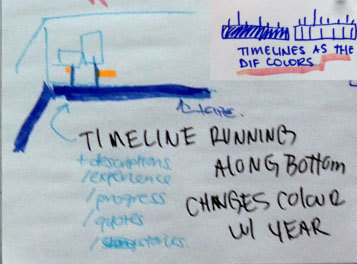 TIMELINES AS THE
DIF COLORS
TIMELINE RUNNING
ALONG BOTTOM
CHANGES COLOUR
W/ YEAR
+ descriptions
/experience
/progress
/quotes